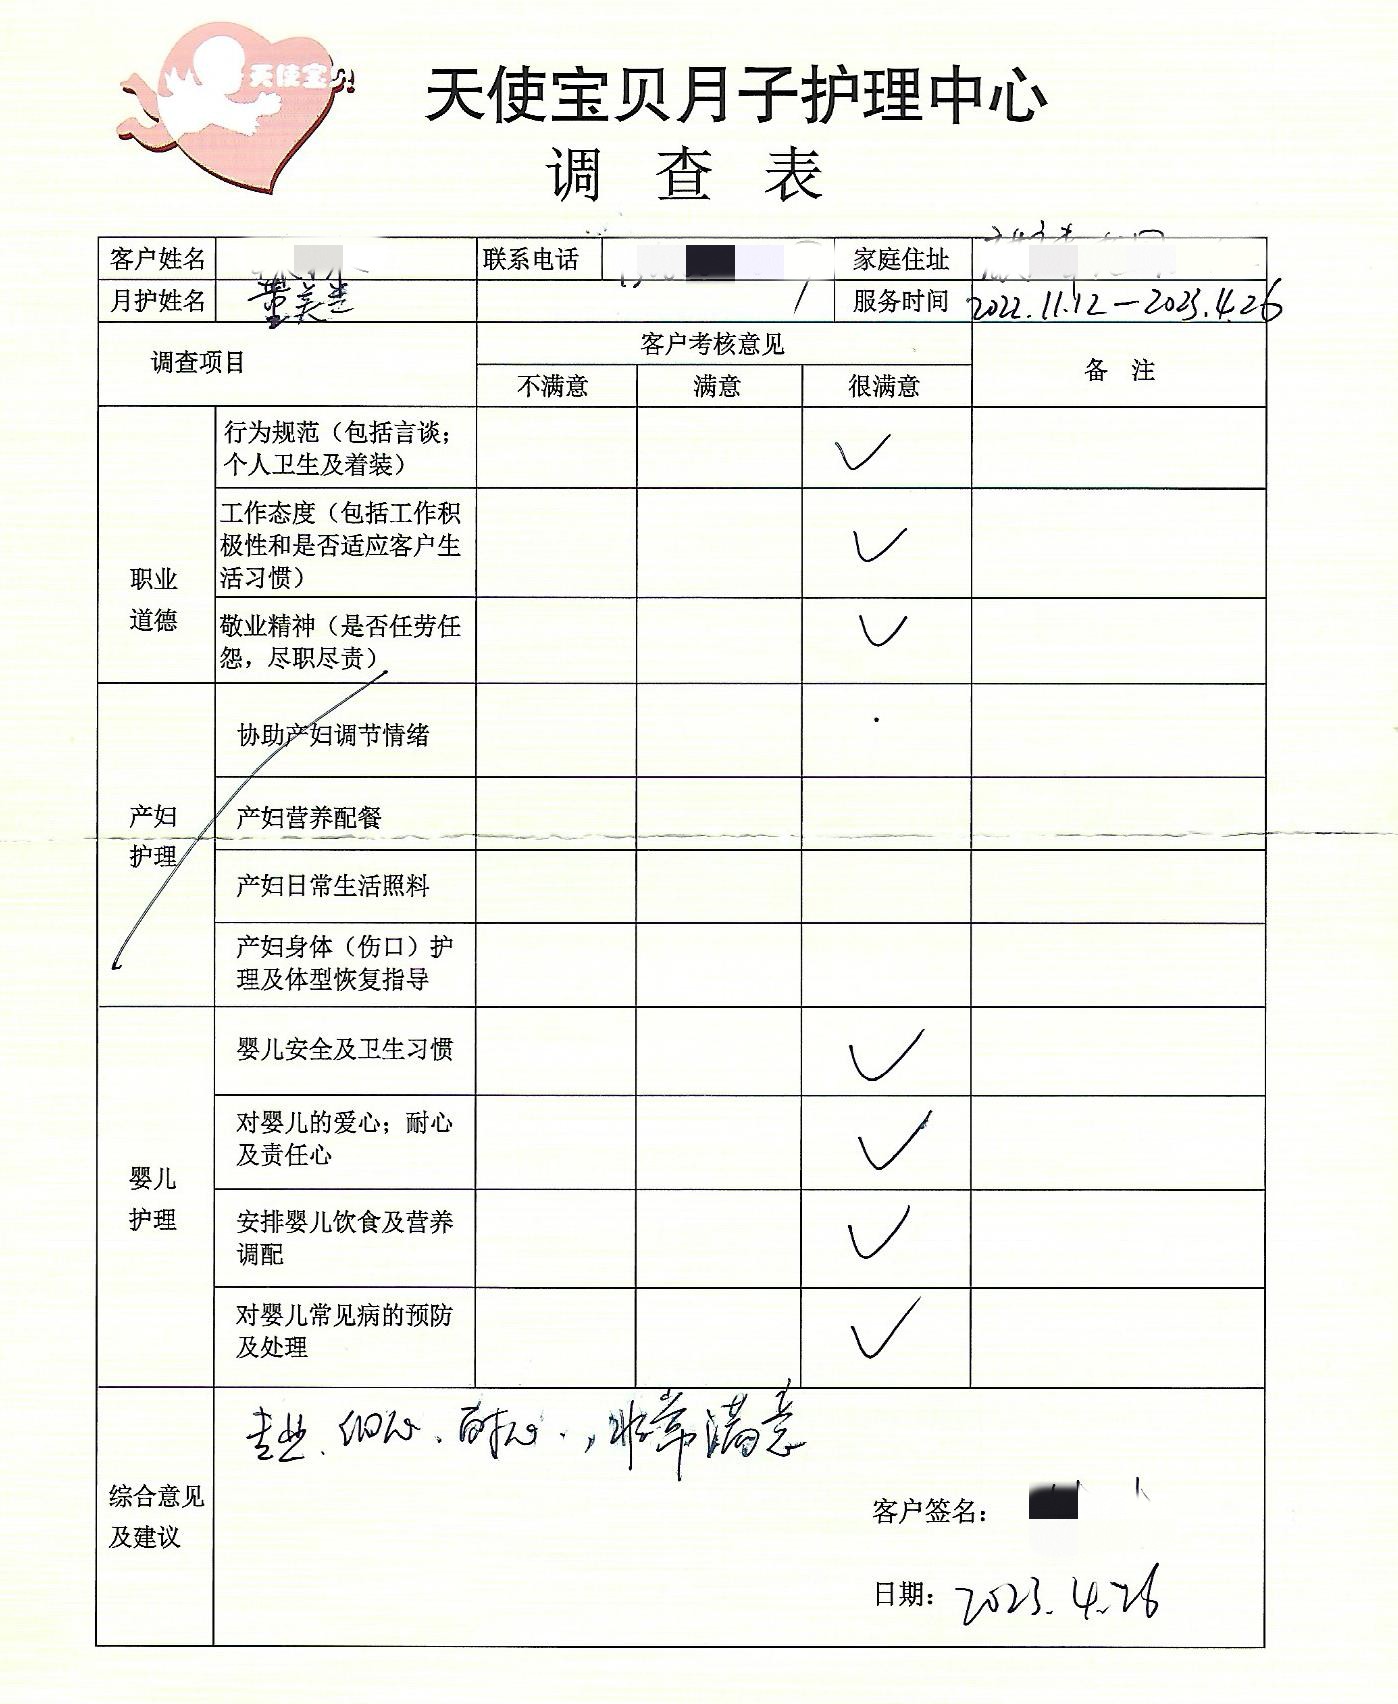 天使宝贝
天使宝贝月子护理中心
调 查 表
客户姓名 联系电话 家庭住址
月护姓名 董美 服务时间 2022.11.12－2023.4.26
调查项目 客户考核意见 备 注
不满意 满意 很满意
职业
道德
行为规范（包括言谈；
个人卫生及着装） ✓
工作态度（包括工作积
极性和是否适应客户生
活习惯） ✓
敬业精神（是否任劳任
怨，尽职尽责） ✓
产妇
护理
协助产妇调节情绪
产妇营养配餐
产妇日常生活照料
产妇身体（伤口）护
理及体型恢复指导
婴儿
护理
婴儿安全及卫生习惯 ✓
对婴儿的爱心；耐心
及责任心 ✓
安排婴儿饮食及营养
调配 ✓
对婴儿常见病的预防
及处理 ✓
综合意见
及建议
专业、细心、耐心，非常满意
客户签名：
日期：2023.4.26